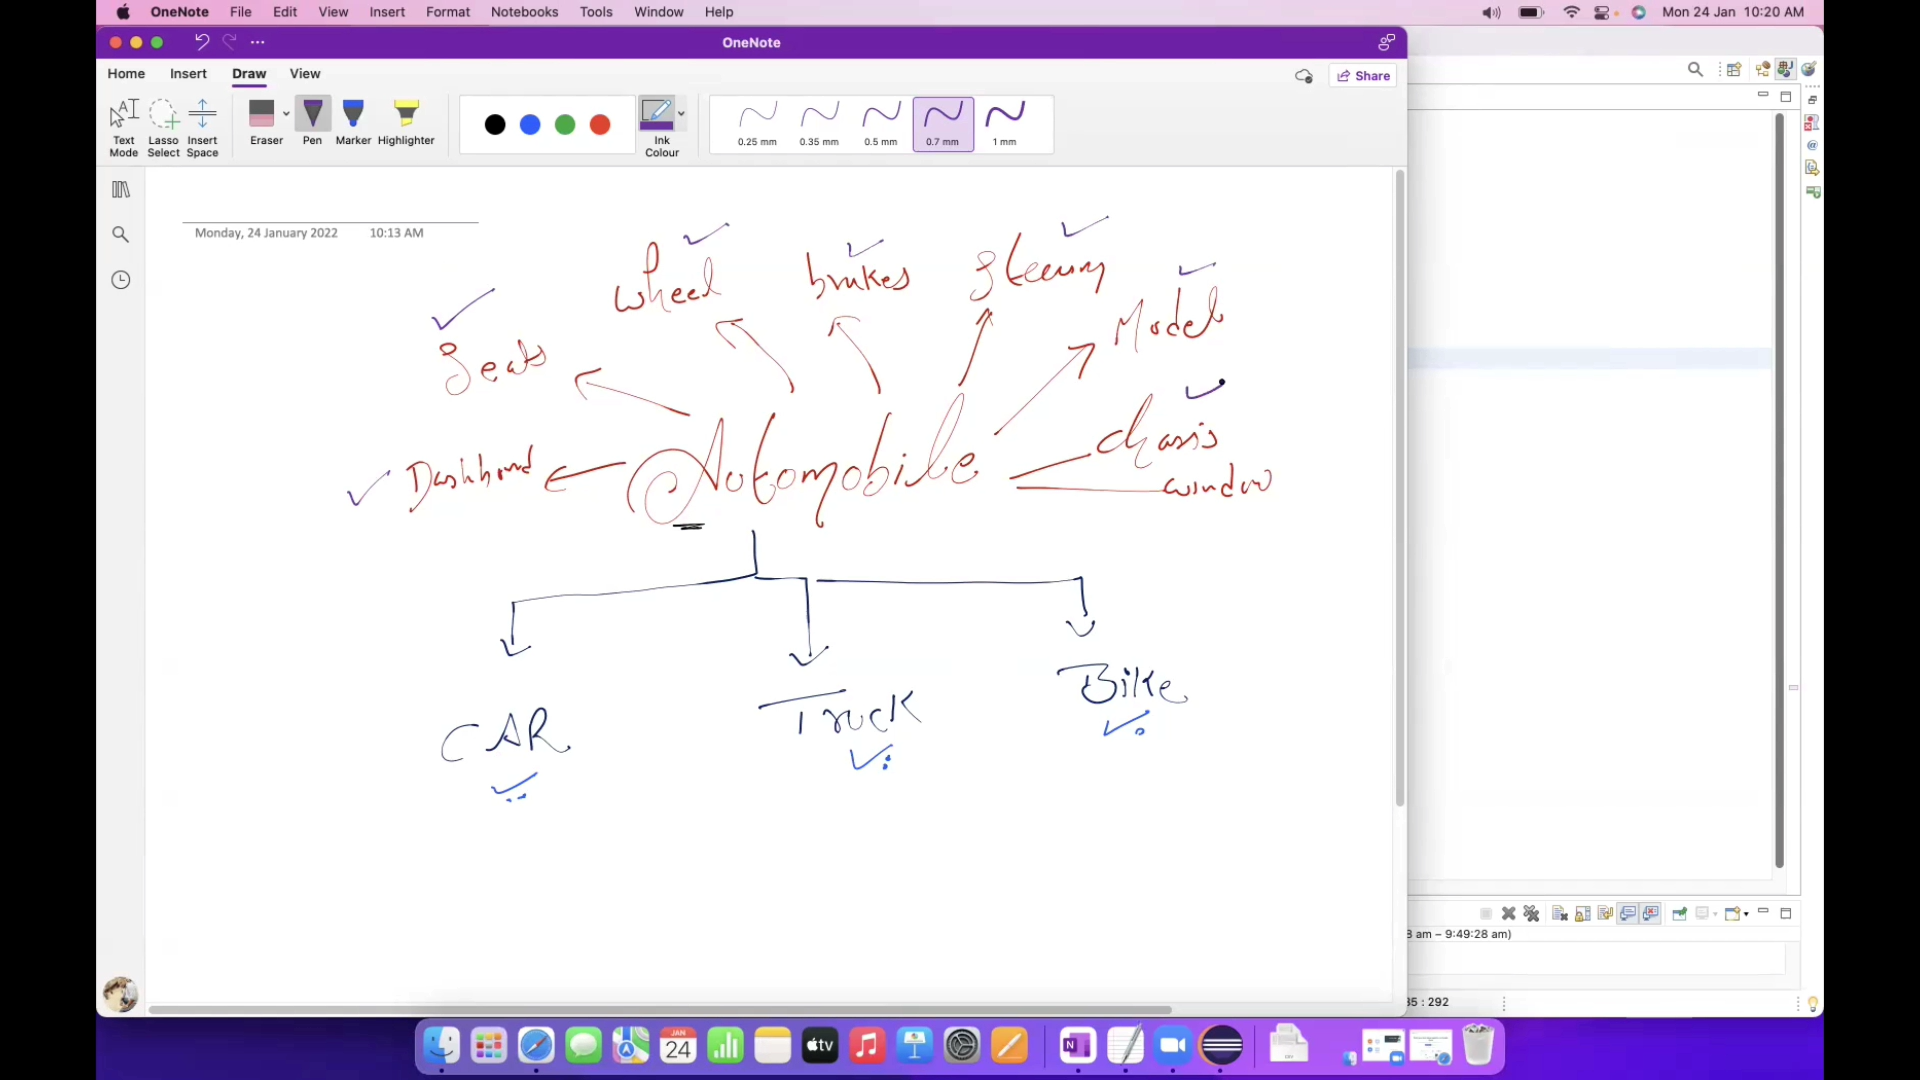 OneNote File Edit View Insert Format Notebooks Tools Window Help
Mon 24 Jan 10:20 AM
OneNote
Home Insert Draw View
Share
Text Mode
Lasso Select
Insert Space
Eraser
Pen
Marker
Highlighter
Ink Colour
0.25 mm
0.35 mm
0.5 mm
0.7 mm
1 mm
Monday, 24 January 2022 10:13 AM
wheel
brakes
Model
Seats
chasis
Automobile
window
CAR
Truck
Bike
8 am – 9:49:28 am)
35 : 292
JAN
24
tv